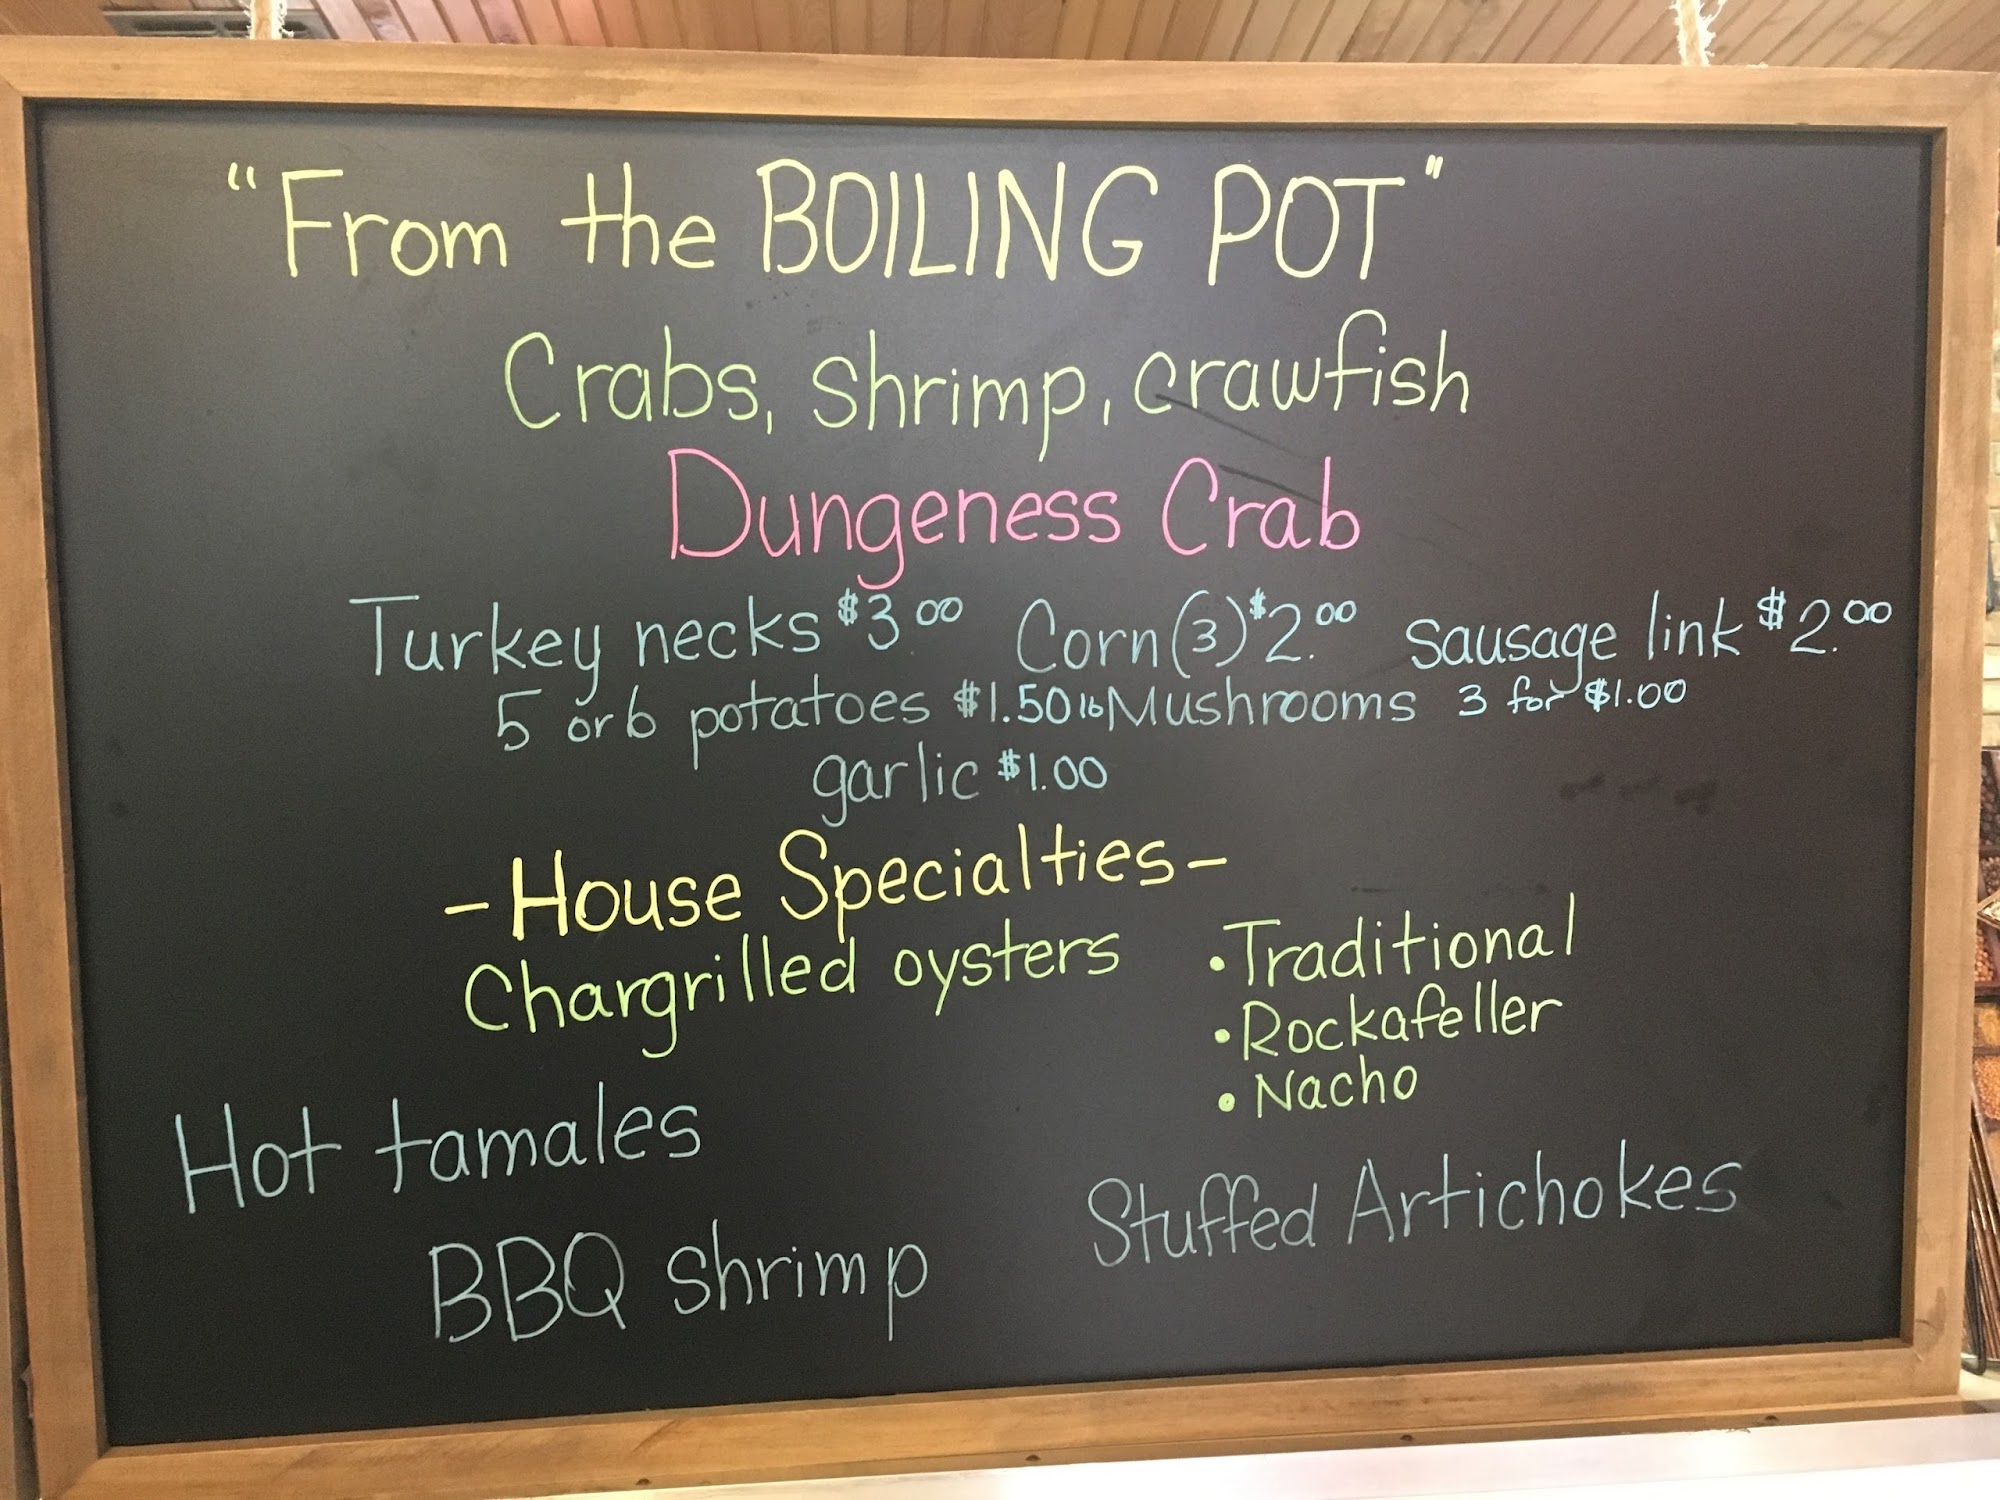 "From the BOILING POT"
Crabs, shrimp, crawfish
Dungeness Crab
Turkey necks $3.00 Corn (3) $2.00 Sausage link $2.00
5 or 6 potatoes $1.50 lb Mushrooms 3 for $1.00
garlic $1.00
- House Specialties -
Chargrilled oysters
• Traditional
• Rockafeller
• Nacho
Hot tamales
Stuffed Artichokes
BBQ shrimp